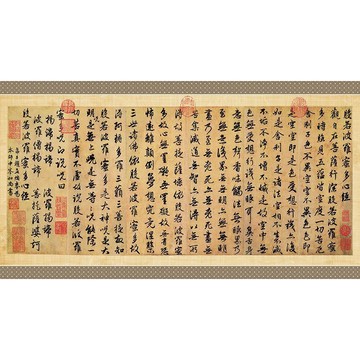 般若波羅蜜多心經
觀自在菩薩行深般若波羅蜜
多時照見五蘊皆空度一切苦厄
舍利子色不異空空不異色色即
是空空即是色受想行識亦復
如是舍利子是諸法空相不生不滅
不垢不淨不增不減是故空中無
色無受想行識無眼耳鼻舌身
意無色聲香味觸法無眼界乃
至無意識界無無明亦無無明
盡乃至無老死亦無老死盡無
苦集滅道無智亦無得以無所
得故菩提薩埵依般若波羅蜜
多故心無罣礙無罣礙故無有恐
怖遠離顛倒夢想究竟涅槃
三世諸佛依般若波羅蜜多故得
阿耨多羅三藐三菩提故知
般若波羅蜜多是大神咒是大
明咒是無上咒是無等等咒能除一
切苦真實不虛故說般若波羅
蜜多咒即說咒曰
揭諦揭諦 波羅揭諦
波羅僧揭諦 菩提薩婆訶
般若波羅蜜多心經
弟子趙孟頫奉為
本師中峰和尚書